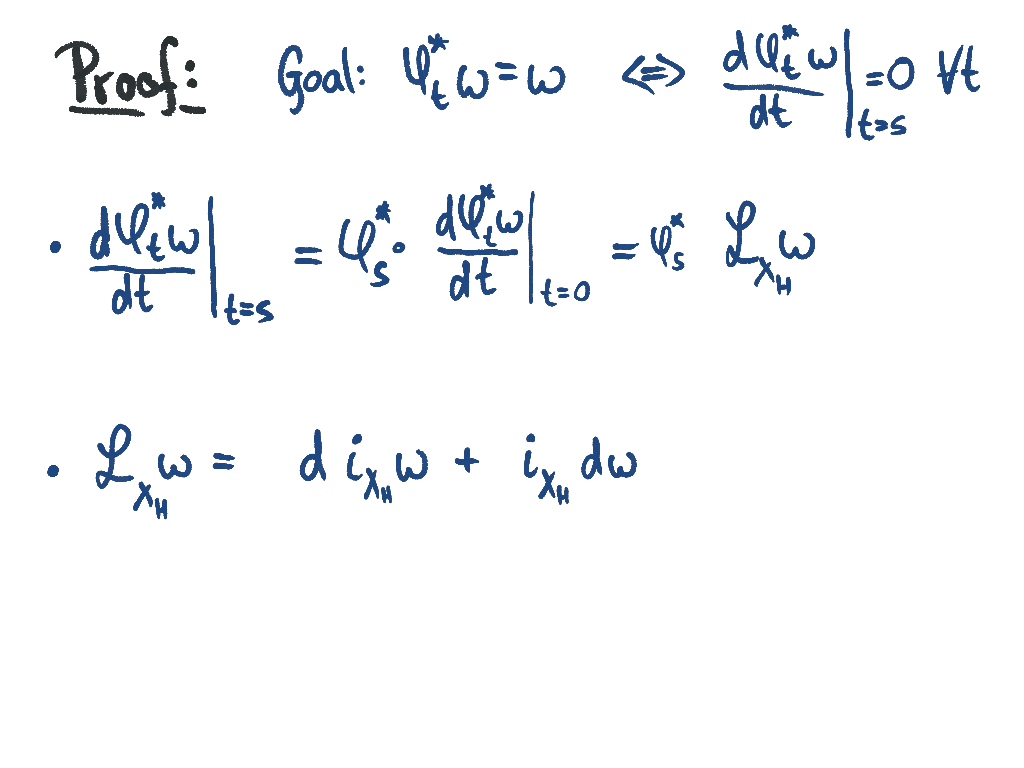 Proof: Goal: φ_t^* ω = ω ⇔ dφ_t^* ω / dt |_{t=s} = 0 ∀t
• dφ_t^* ω / dt |_{t=s} = φ_s^* · dφ_t^* ω / dt |_{t=0} = φ_s^* ℒ_{X_H} ω
• ℒ_{X_H} ω = d i_{X_H} ω + i_{X_H} dω